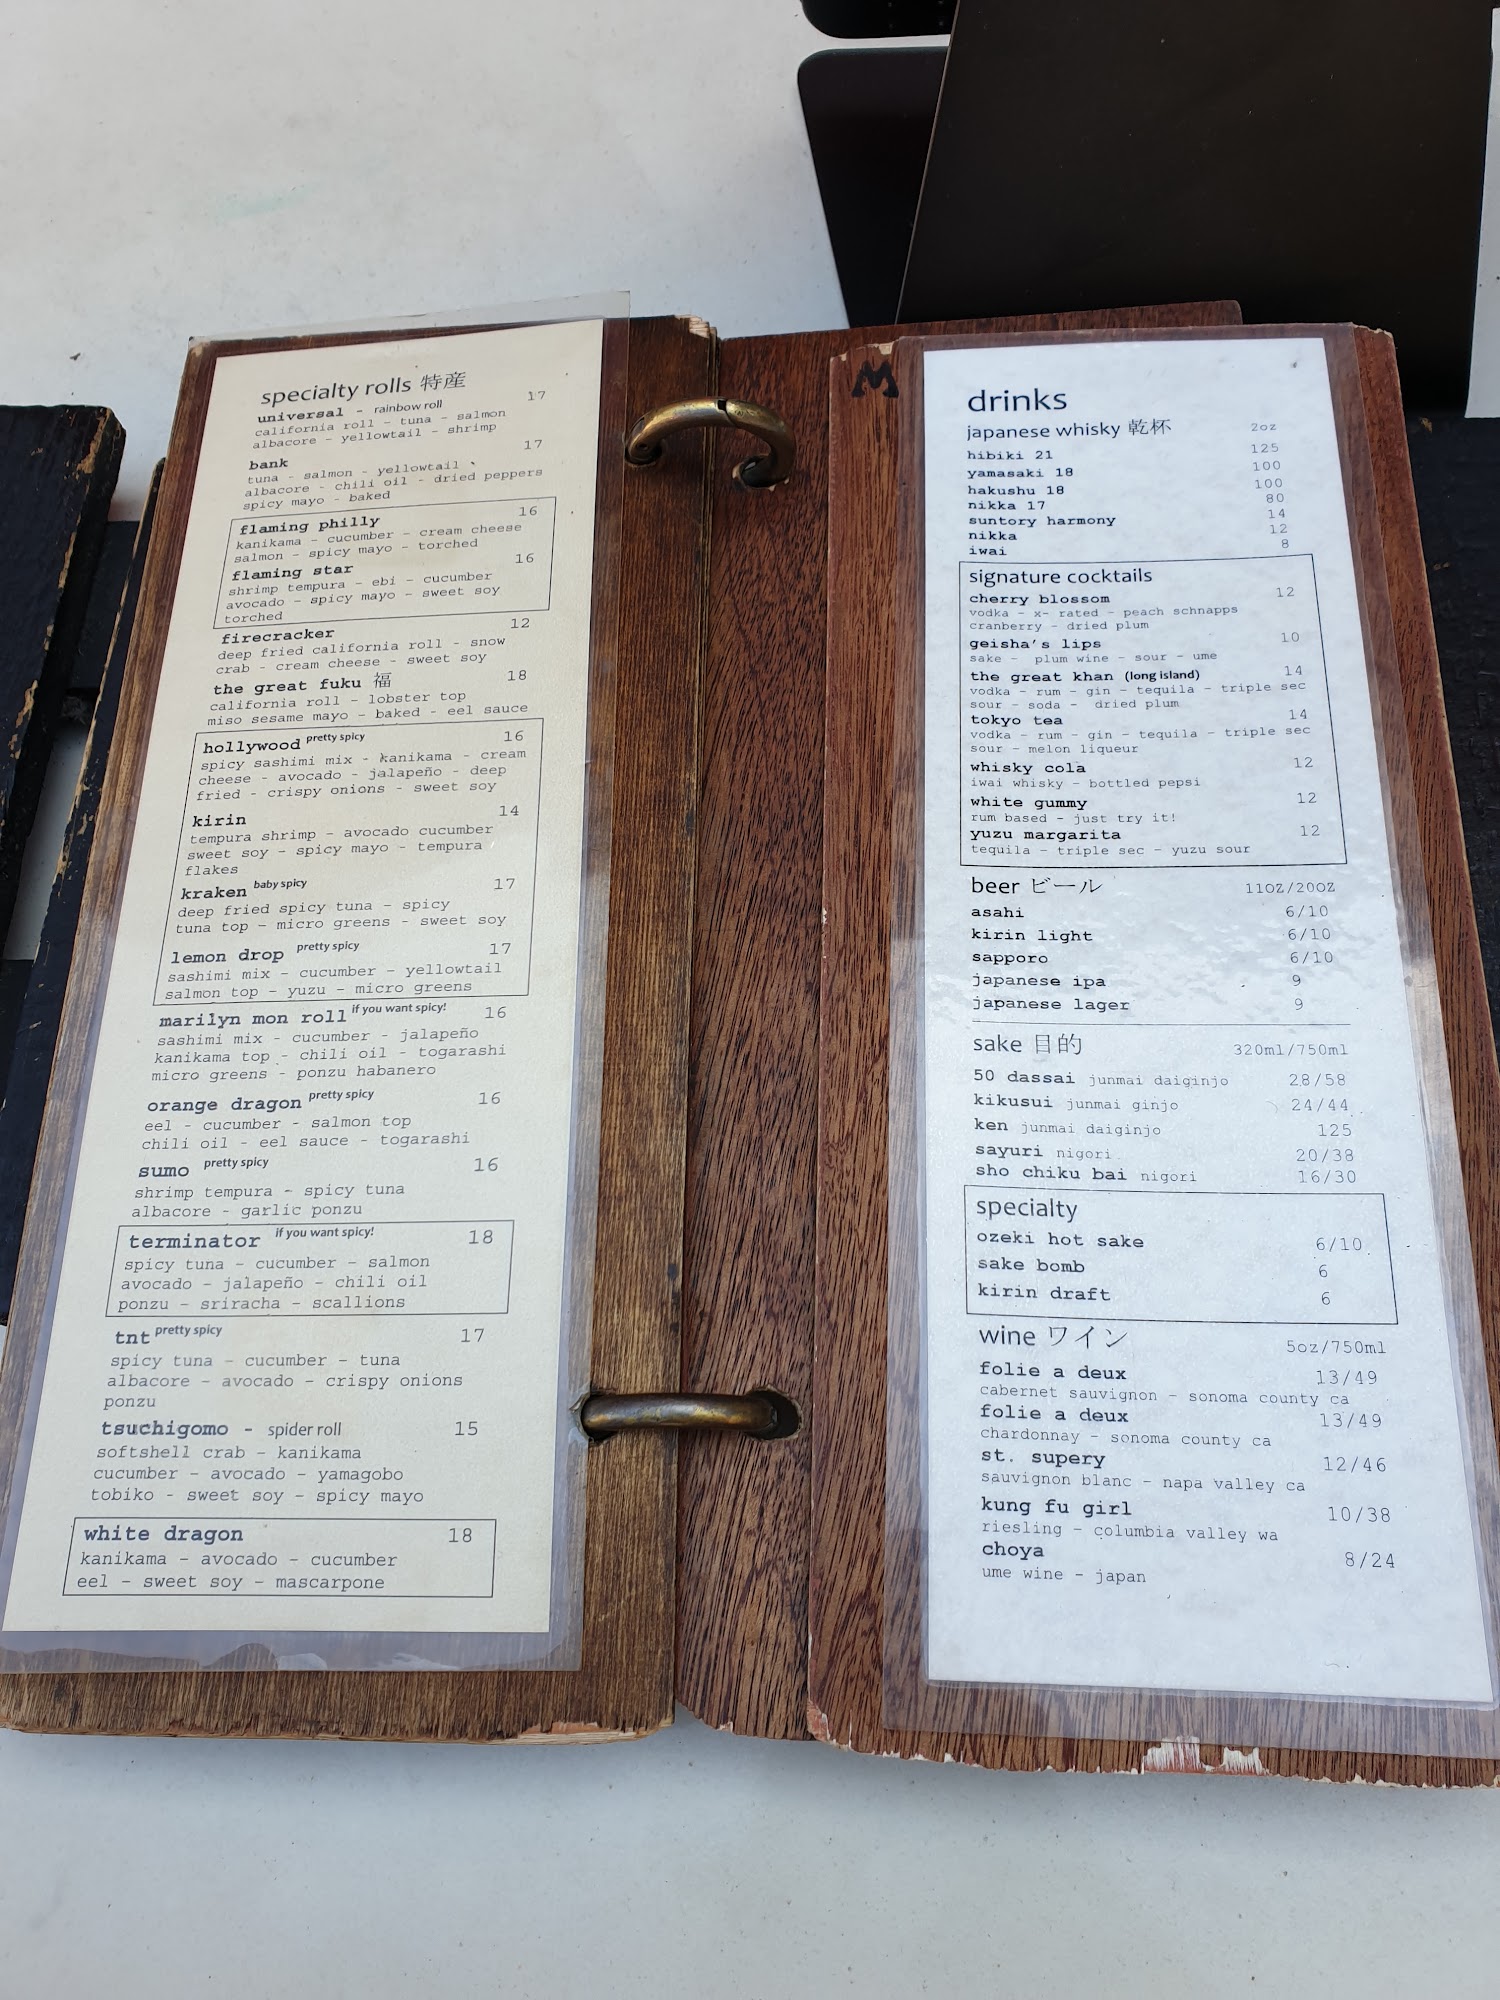 specialty rolls 特産
universal - rainbow roll 17
california roll - tuna - salmon
albacore - yellowtail - shrimp
bank 17
tuna - salmon - yellowtail
albacore - chili oil - dried peppers
spicy mayo - baked
flaming philly 16
kanikama - cucumber - cream cheese
salmon - spicy mayo - torched
flaming star 16
shrimp tempura - ebi - cucumber
avocado - spicy mayo - sweet soy
torched
firecracker 12
deep fried california roll - snow
crab - cream cheese - sweet soy
the great fuku 福 18
california roll - lobster top
miso sesame mayo - baked - eel sauce
hollywood pretty spicy 16
spicy sashimi mix - kanikama - cream
cheese - avocado - jalapeño - deep
fried - crispy onions - sweet soy
kirin 14
tempura shrimp - avocado cucumber
sweet soy - spicy mayo - tempura
flakes
kraken baby spicy 17
deep fried spicy tuna - spicy
tuna top - micro greens - sweet soy
lemon drop pretty spicy 17
sashimi mix - cucumber - yellowtail
salmon top - yuzu - micro greens
marilyn mon roll if you want spicy! 16
sashimi mix - cucumber - jalapeño
kanikama top - chili oil - togarashi
micro greens - ponzu habanero
orange dragon pretty spicy 16
eel - cucumber - salmon top
chili oil - eel sauce - togarashi
sumo pretty spicy 16
shrimp tempura - spicy tuna
albacore - garlic ponzu
terminator if you want spicy! 18
spicy tuna - cucumber - salmon
avocado - jalapeño - chili oil
ponzu - sriracha - scallions
tnt pretty spicy 17
spicy tuna - cucumber - tuna
albacore - avocado - crispy onions
ponzu
tsuchigomo - spider roll 15
softshell crab - kanikama
cucumber - avocado - yamagobo
tobiko - sweet soy - spicy mayo
white dragon 18
kanikama - avocado - cucumber
eel - sweet soy - mascarpone
M
drinks
japanese whisky 乾杯 2oz
hibiki 21 125
yamasaki 18 100
hakushu 18 100
nikka 17 80
suntory harmony 14
nikka 12
iwai 8
signature cocktails
cherry blossom 12
vodka - x- rated - peach schnapps
cranberry - dried plum
geisha's lips 10
sake - plum wine - sour - ume
the great khan (long island) 14
vodka - rum - gin - tequila - triple sec
sour - soda - dried plum
tokyo tea 14
vodka - rum - gin - tequila - triple sec
sour - melon liqueur
whisky cola 12
iwai whisky - bottled pepsi
white gummy 12
rum based - just try it!
yuzu margarita 12
tequila - triple sec - yuzu sour
beer ビール 11OZ/20OZ
asahi 6/10
kirin light 6/10
sapporo 6/10
japanese ipa 9
japanese lager 9
sake 目的 320ml/750ml
50 dassai junmai daiginjo 28/58
kikusui junmai ginjo 24/44
ken junmai daiginjo 125
sayuri nigori 20/38
sho chiku bai nigori 16/30
specialty
ozeki hot sake 6/10
sake bomb 6
kirin draft 6
wine ワイン 5oz/750ml
folie a deux 13/49
cabernet sauvignon - sonoma county ca
folie a deux 13/49
chardonnay - sonoma county ca
st. supery 12/46
sauvignon blanc - napa valley ca
kung fu girl 10/38
riesling - columbia valley wa
choya 8/24
ume wine - japan